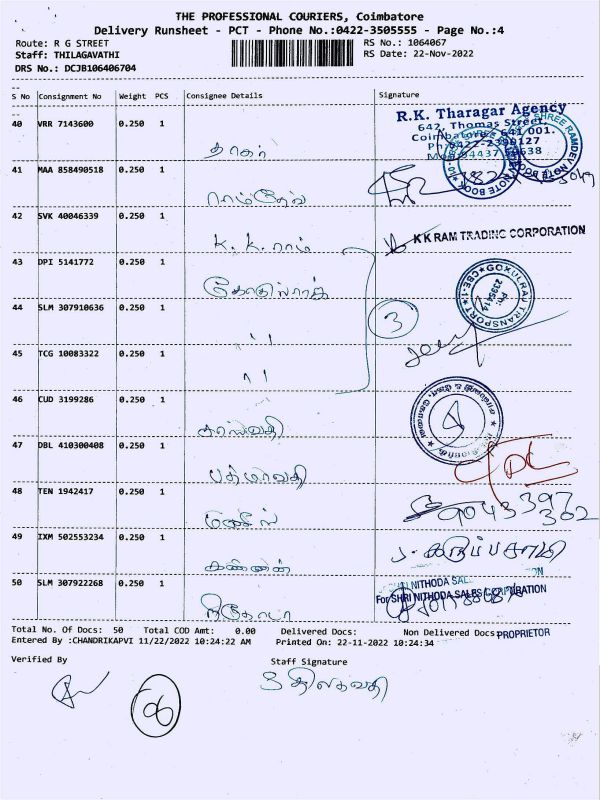 THE PROFESSIONAL COURIERS, Coimbatore
Delivery Runsheet - PCT - Phone No.:0422-3505555 - Page No.:4
Route: R G STREET RS No.: 1064067
Staff: THILAGAVATHI RS Date: 22-Nov-2022
DRS No.: DCJB106406704
S No Consignment No Weight PCS Consignee Details Signature
R.K. Tharagar Agency
642, Thomas Street,
40 VRR 7143600 0.250 1 தாகர்
41 MAA 858490518 0.250 1 ராம்தேவ்
42 SVK 40046339 0.250 1 K.K.ராம் K K RAM TRADING CORPORATION
43 DPI 5141772 0.250 1 கோகுல்ராஜ் GOKULRAJ TRANSPORT CBE-1 Ph: 2395414
44 SLM 307910636 0.250 1 " 3
45 TCG 10083322 0.250 1 "
46 CUD 3199286 0.250 1
47 DBL 410300408 0.250 1 பத்மாவதி
48 TEN 1942417 0.250 1 9043397302
49 IXM 502553234 0.250 1 கண்ணன்
50 SLM 307922268 0.250 1 நிதோடா For SHRI NITHODA SALES CORPORATION
Total No. Of Docs: 50 Total COD Amt: 0.00 Delivered Docs: Non Delivered Docs: PROPRIETOR
Entered By :CHANDRIKAPVI 11/22/2022 10:24:22 AM Printed On: 22-11-2022 10:24:34
Verified By Staff Signature